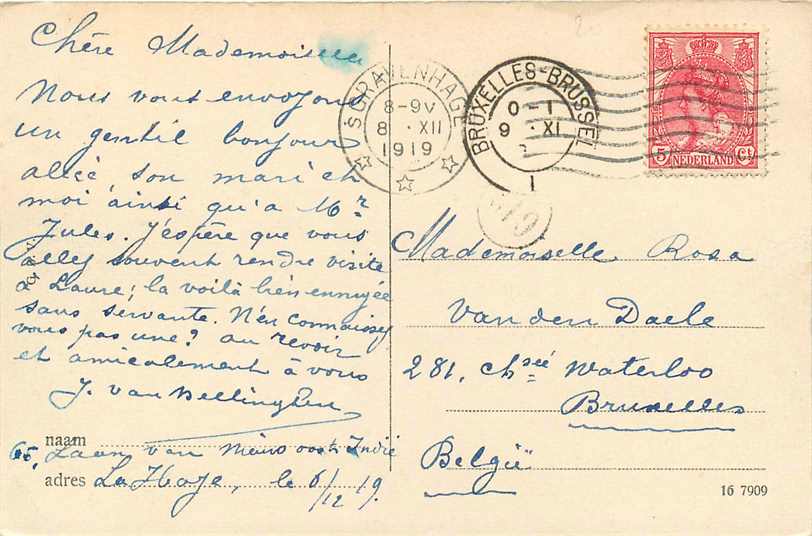 Chère Mademoiselle
Nous vous envoyons
un gentil bonjour
allée son mari et
moi ainsi qu'a Mr
Jules. J'éspère que vous
allez souvent rendre visite
à Laure; la voilà bien ennuyée
sans servante. N'en connaissez
vous pas une? au revoir
et amicalement à vous
J. van
naam
65, Laan van Nieuw oost Indie
adres La Haye, le 6/12 19.
'SGRAVENHAGE
8-9V
8 XII
1919
BRUXELLES-BRUSSEL
0-1
9 XI
1
5 Ct
NEDERLAND
Mademoiselle Rosa
van den Daele
281, Chsée Waterloo
Bruxelles
België
16 7909